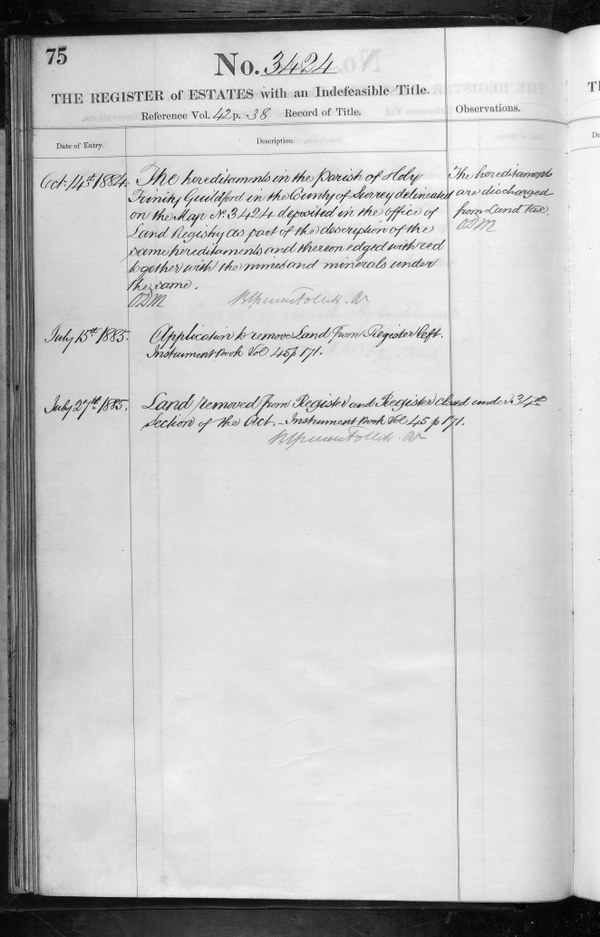 75
No. 3424
THE REGISTER of ESTATES with an Indefeasible Title.
Reference Vol. 42 p. 38 Record of Title.
Observations.
Date of Entry.
Description.
Oct. 14th 1884.
The hereditaments in the Parish of Holy
Trinity Guildford in the County of Surrey delineated
on the Map No. 3424 deposited in the office of
Land Registry as part of the description of the
same hereditaments and thereon edged with red
together with the mines and minerals under
the same.
The hereditaments
are discharged
from Land Tax.
July 15th 1885.
Application to remove Land from Register left.
Instrument Book Vol 45 p 171.
July 27th 1885.
Land removed from Register and Register closed under 34th
Section of the Act. - Instrument Book Vol 45 p 171.